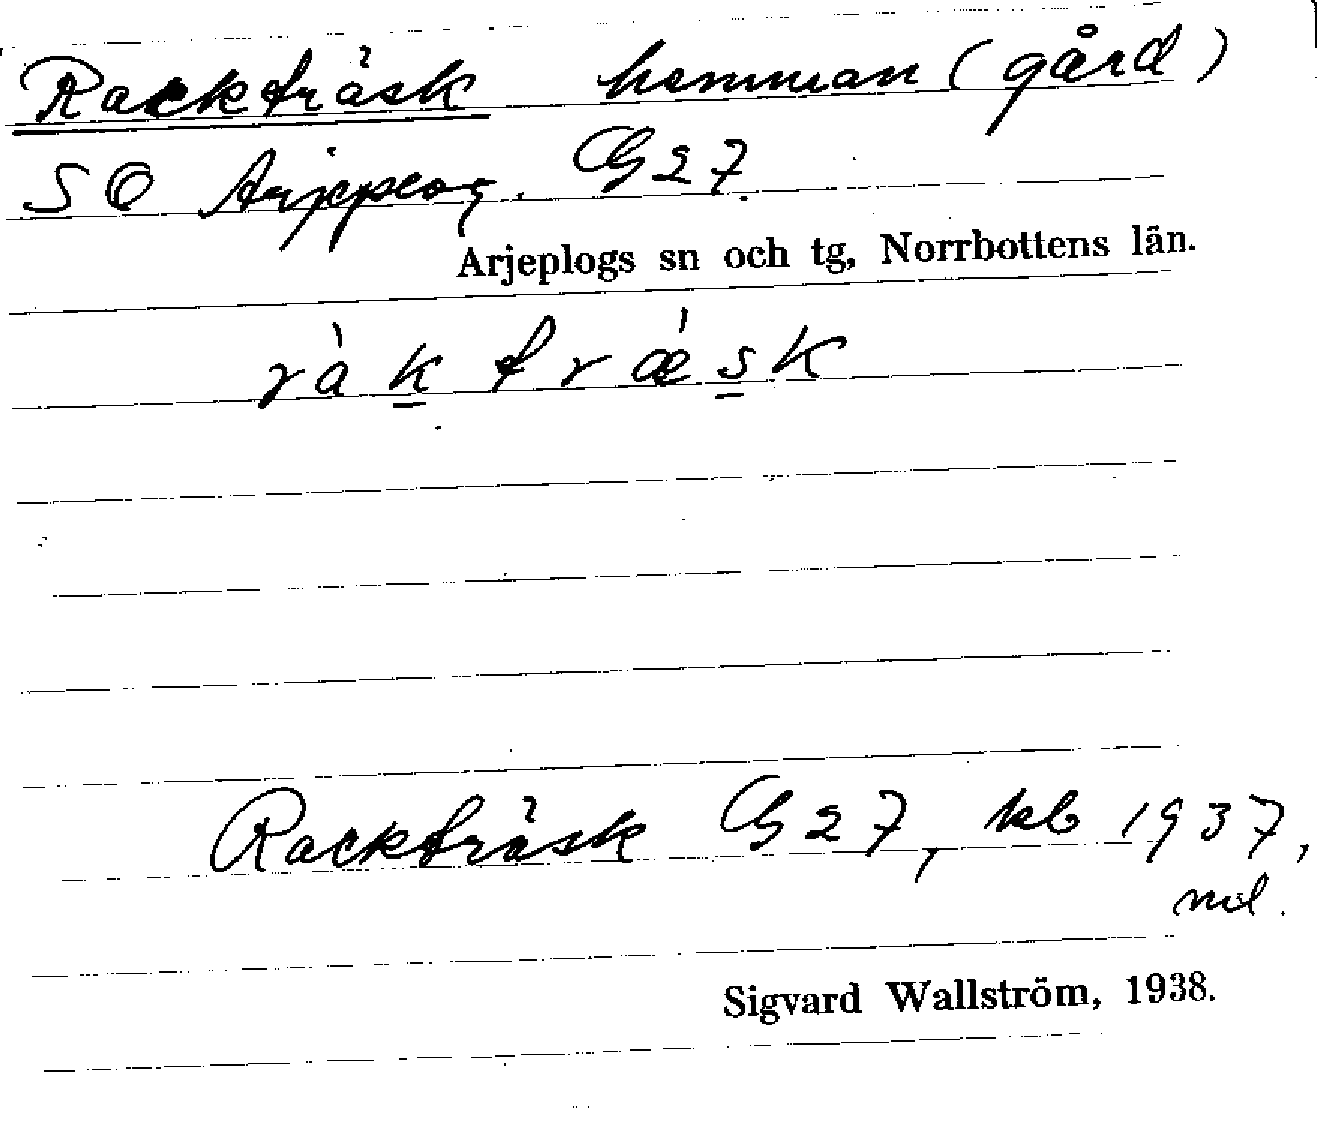 Rackträsk hemman (gård)
SO Arjeplog. G 27.
Arjeplogs sn och tg, Norrbottens län.
ràk træ̀sk
Rackträsk G 27, kb 1937,
nul.
Sigvard Wallström, 1938.